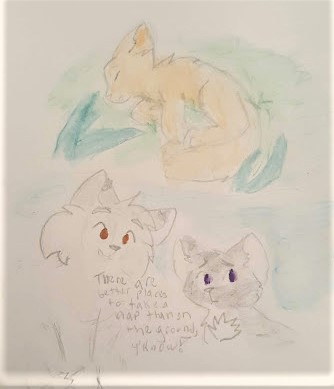 There are
better places
to take a
nap than on
the ground,
y'know?